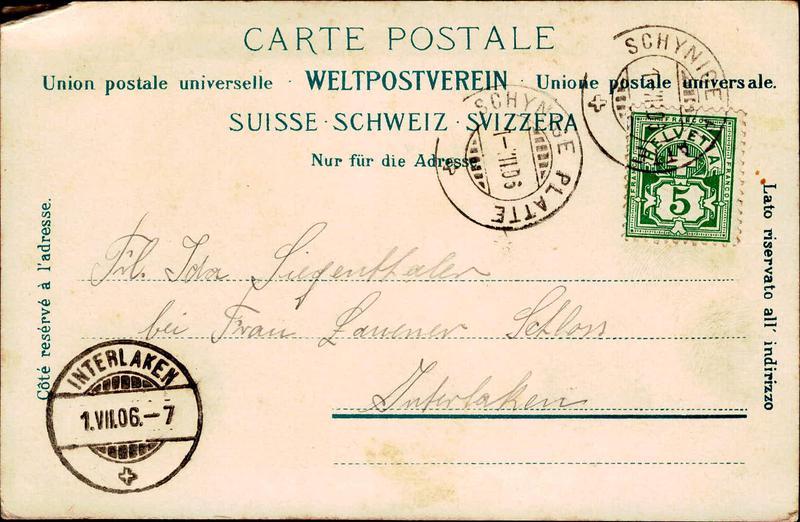 CARTE POSTALE
Union postale universelle · WELTPOSTVEREIN · Unione postale universale.
SUISSE · SCHWEIZ · SVIZZERA
Nur für die Adresse
SCHYNIGE PLATTE
1.VII.06
SCHYNIGE
HELVETIA
FRANCO
5
Côté resérvé à l'adresse.
Lato riservato all' indirizzo
Frl. Ida Siegenthaler
bei Frau Lauener Schloss
Interlaken
INTERLAKEN
1.VII.06.-7